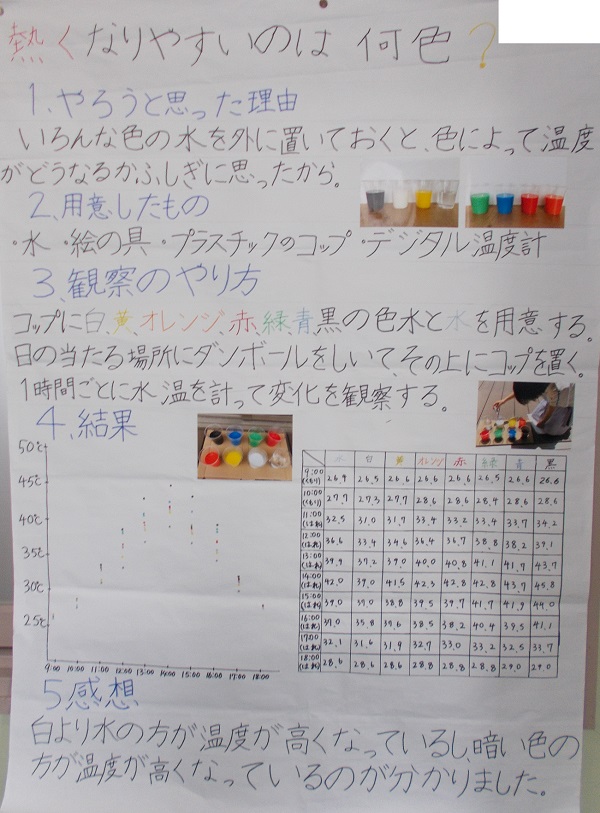 熱くなりやすいのは 何色?
1.やろうと思った理由
いろんな色の水を外に置いておくと、色によって温度
がどうなるかふしぎに思ったから。
2.用意したもの
・水 ・絵の具 ・プラスチックのコップ ・デジタル温度計
3.観察のやり方
コップに白、黄、オレンジ、赤、緑、青、黒の色水と水を用意する。
日の当たる場所にダンボールをしいて、その上にコップを置く。
1時間ごとに水温を計って変化を観察する。
4.結果
50℃
45℃
40℃
35℃
30℃
25℃
9:00 10:00 11:00 12:00 13:00 14:00 15:00 16:00 17:00 18:00
水 白 黄 オレンジ 赤 緑 青 黒
9:00 (くもり) 26.9 26.5 26.6 26.6 26.6 26.5 26.6 26.6
10:00 (くもり) 27.7 27.3 27.7 28.6 28.6 28.4 28.6 28.6
11:00 (はれ) 32.5 31.0 31.7 33.4 33.2 33.4 33.7 34.2
12:00 (はれ) 36.6 33.4 34.6 36.4 36.7 38.8 38.2 39.1
13:00 (はれ) 39.9 37.2 39.0 40.0 40.8 41.1 41.7 43.7
14:00 (はれ) 42.0 39.0 41.5 42.3 42.8 42.8 43.7 45.8
15:00 (はれ) 39.0 37.0 38.8 39.5 39.7 41.7 41.9 44.0
16:00 (はれ) 37.0 35.8 35.6 38.5 38.2 40.4 39.5 41.1
17:00 (はれ) 32.1 31.6 31.9 32.7 33.0 33.2 32.5 33.7
18:00 (はれ) 28.6 28.6 28.6 28.8 28.8 28.8 29.0 29.0
5感想
白より水の方が温度が高くなっているし、暗い色の
方が温度が高くなっているのが分かりました。